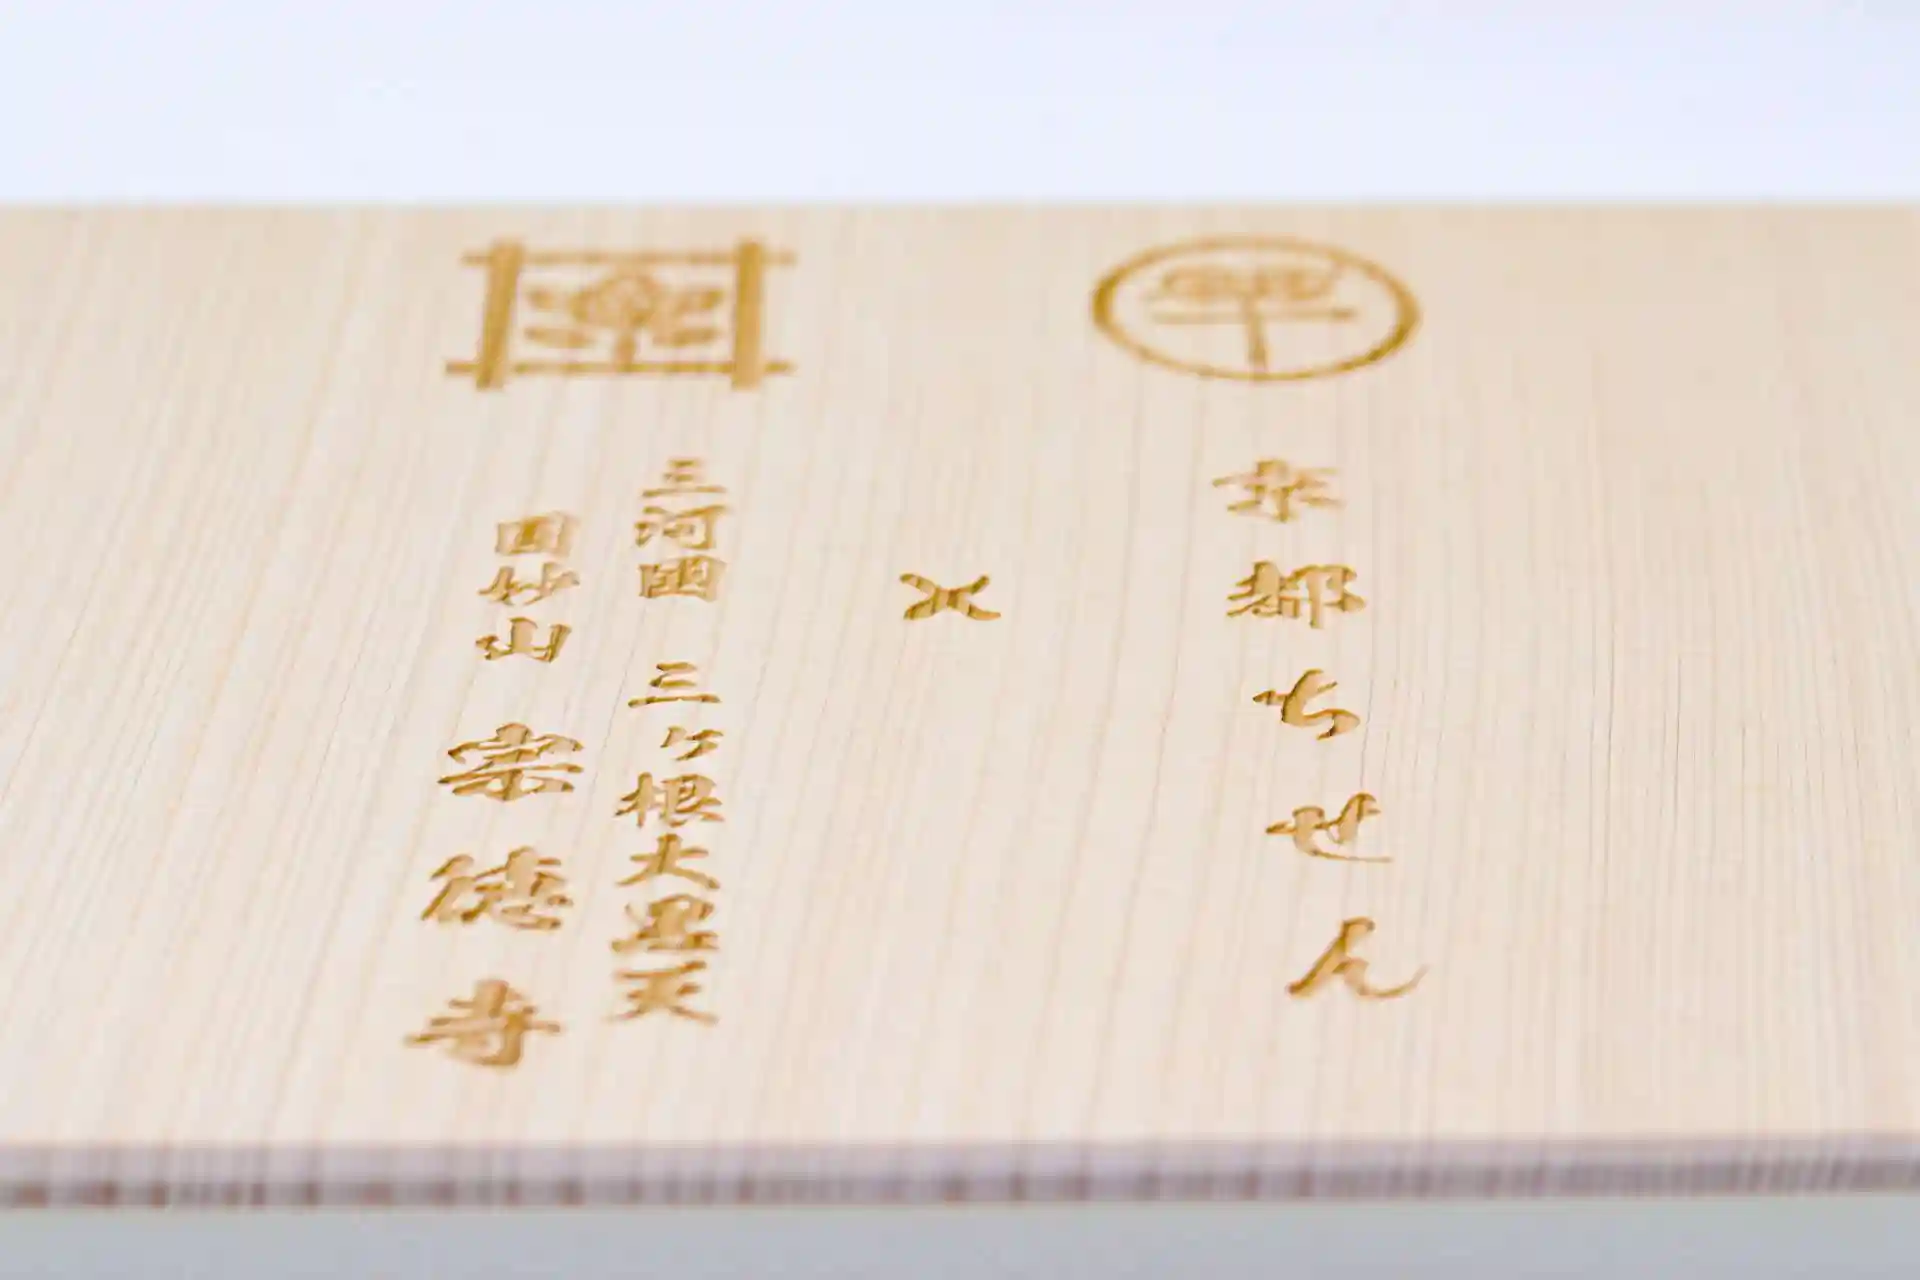 京都ちせん
×
三河国 三ヶ根大黒天
円妙山 宗徳寺